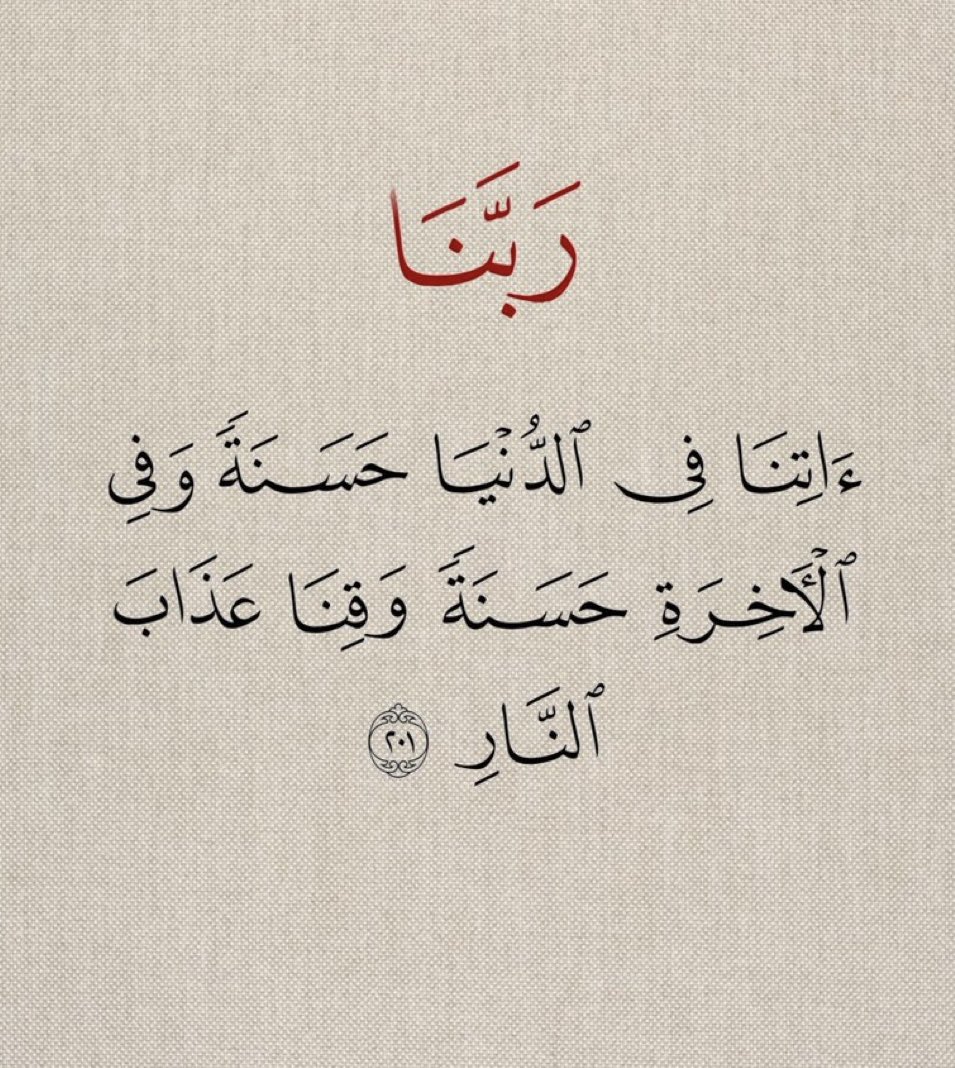 رَبَّنَا
ءَاتِنَا فِى ٱلدُّنْيَا حَسَنَةً وَفِى
ٱلْأَخِرَةِ حَسَنَةً وَقِنَا عَذَابَ
ٱلنَّارِ ٢٠١